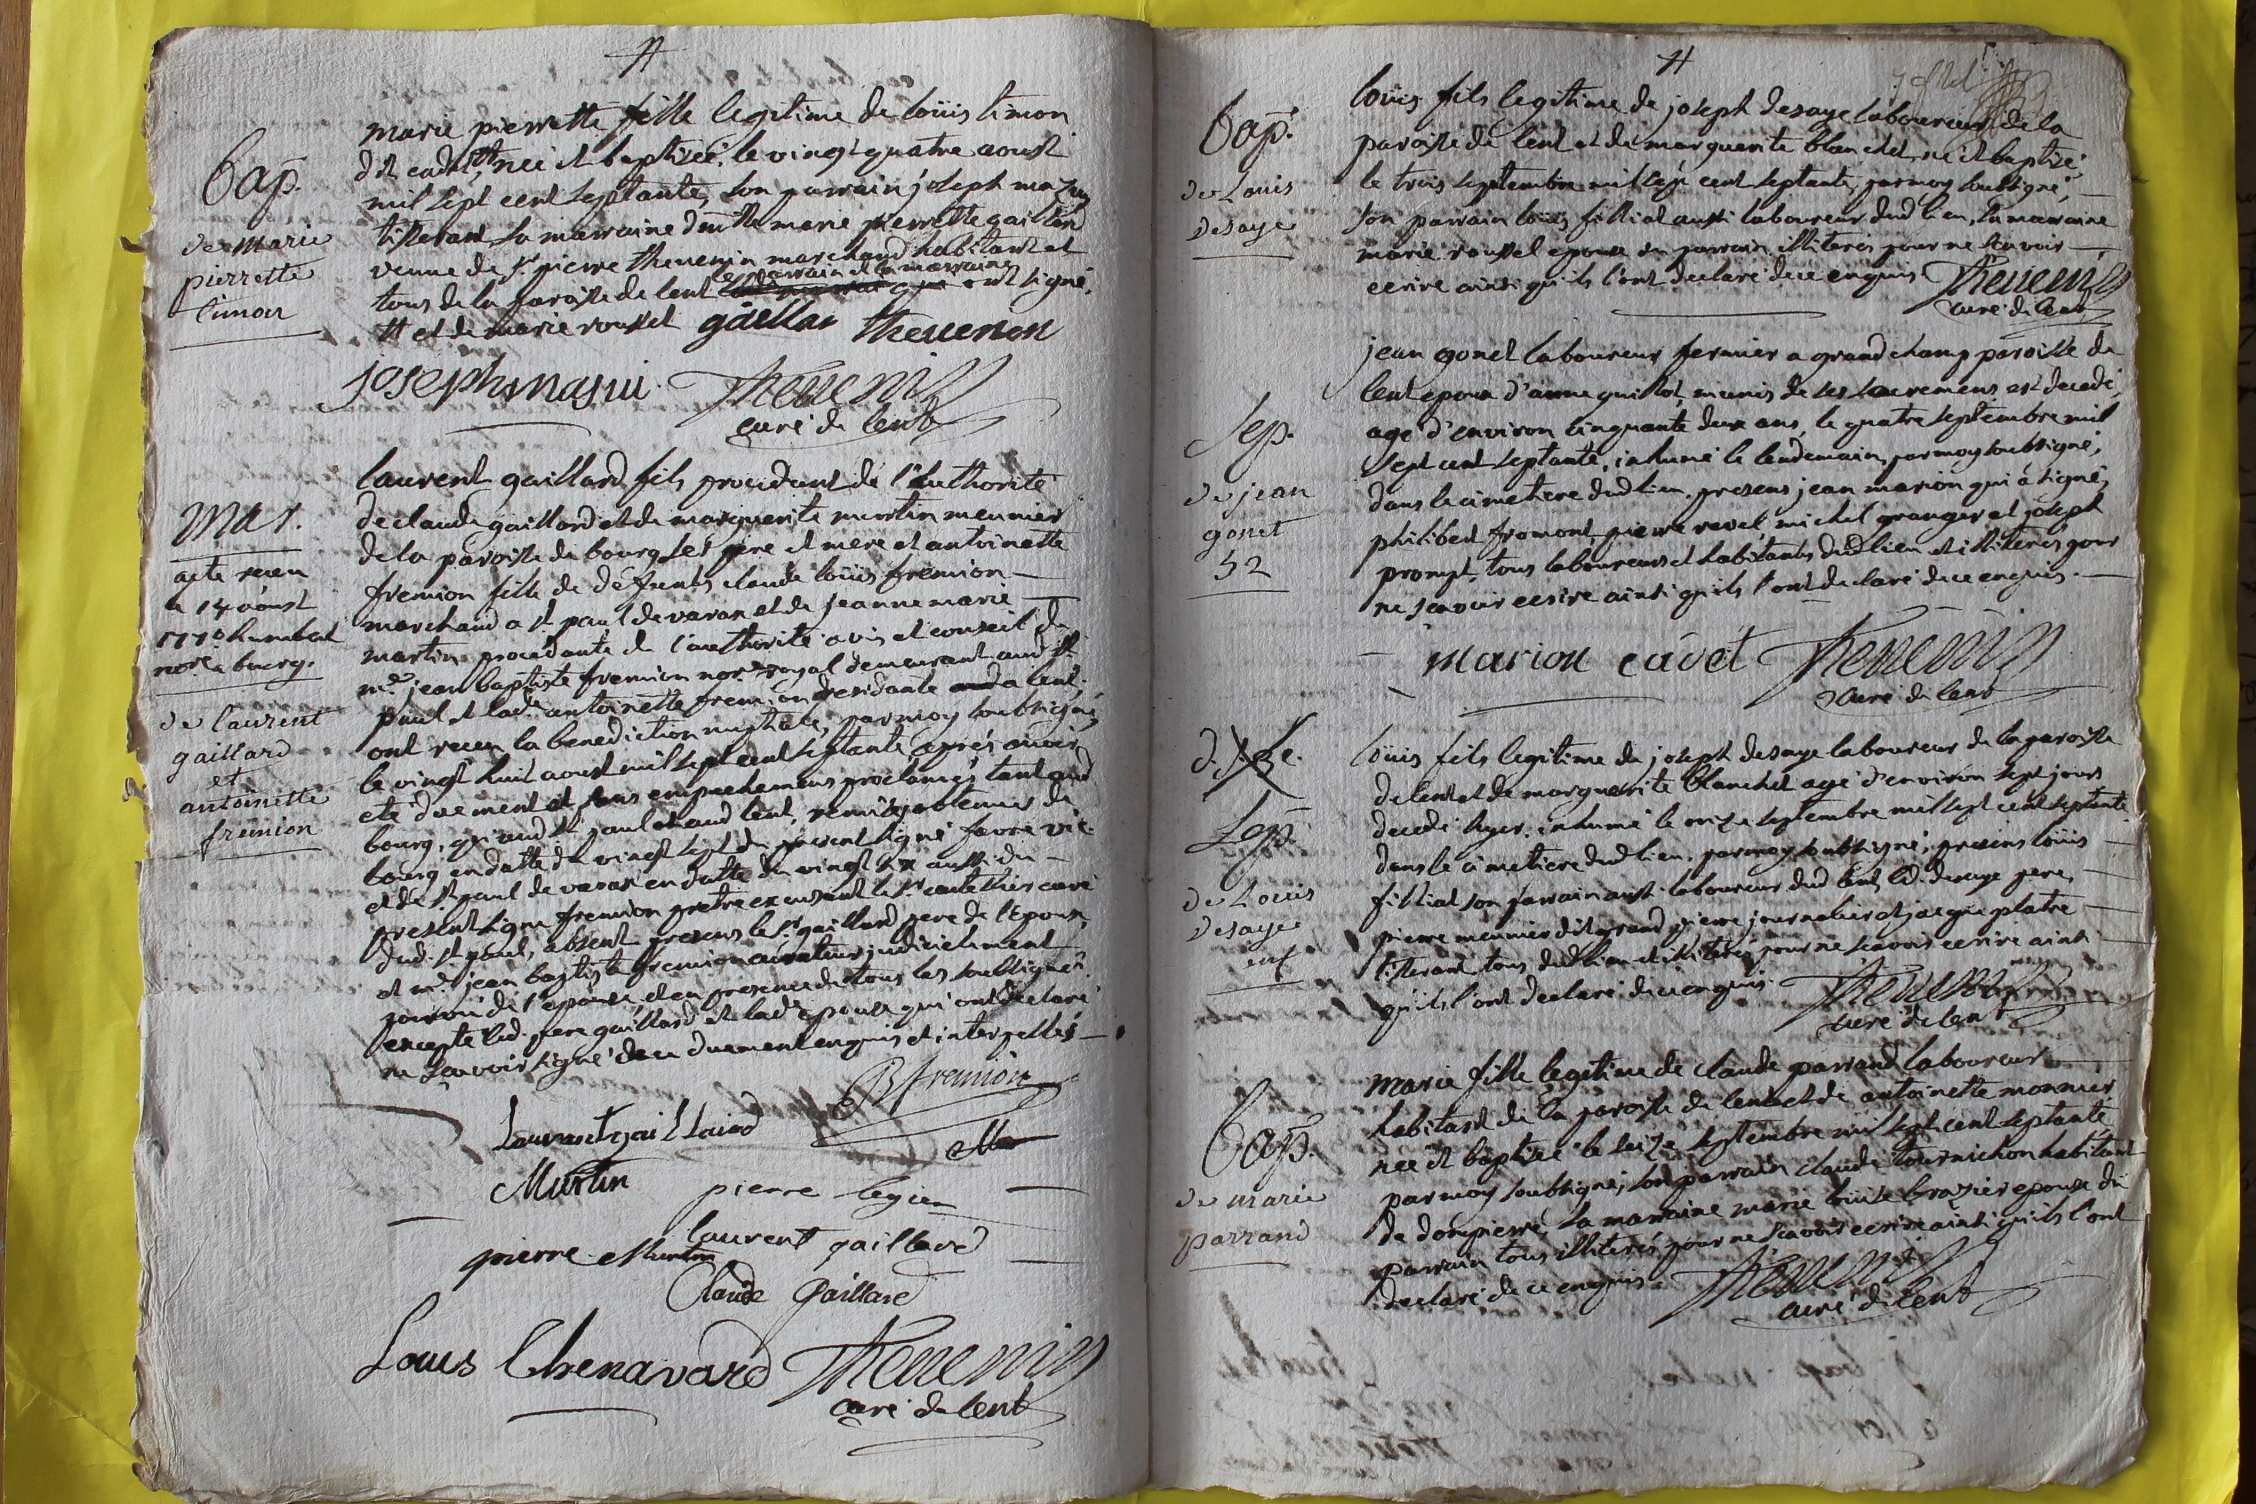 Bap.
de marie
pierrette
limon
marie pierrette fille legitime de loüis limon
dit cadet, née et baptisée le vingt quatre aoust
mil sept cent septante, son parrain joseph mazuy
tisserand sa marraine dmlle marie pierrette gaillard
veuve de sr. pierre thevenin marchand habitant et
tous de la paroisse de lent le parrain et la marraine ont signé.
tt et de marie roussel gaillar thevenon
joseph masui. Thevenin
curé de lent
mar.
acte receu
le 14 aoust
1770 humbert
nore. a bourg.
de laurent
gaillard
et
antoinette
fremion
laurent gaillard fils procedant de l'authorité
de claude gaillard et de marguerite martin meunier
de la paroisse de bourg ses pere et mere et antoinette
fremion fille de défunts claude loüis fremion
marchand a st. paul de varax et de jeanne marie
martin procedante de l'authorité avis et conseil de
me. jean baptiste fremion nore. royal demeurant aud. st.
paul et lade. antoinette fremion residante a lent,
ont receu la benediction nuptiale, par moy soubsigné,
le vingt huit aoust mil sept cent septante, aprés avoir
eté duement et sans empechemens proclamés tant aud.
bourg, qu'aud. st. paul et aud. lent, remises obtenues de
bourg en datte du vingt sept du present signé favre vic.
et de st. paul de varax en datte du vingt six aussi du
present signé fremion pretre excusant le sr. curé
dud. st. paul, absent presens le sr. gaillard pere de l'epoux,
et me. jean baptiste fremion curateur judicielement
pourvu de l'epouse, et en presence de tous les soubsignés
excepté led. pere gaillard et lad. epouse qui ont declaré
ne scavoir signé de ce duement enquis et interpellés
Laurant gaillaird Bfremion
Martin pierre legier
laurent gaillard
pierre Martin
Claude Gaillard
Louis Chenavard Thevenin
curé de lent
Bap.
de Louis
desaye
loüis fils legitime de joseph desaye laboureur de la
paroisse de lent et de marguerite blanchet, né et baptisé
le trois septembre mil sept cent septante, par moy soubsigné,
son parrain loüis filliat aussi laboureur dud. lieu, la marraine
marie roussel epouse du parrain illiterés pour ne scavoir
ecrire ainsi qu'ils l'ont declaré de ce enquis Thevenin
curé de lent
Sep.
de jean
gonet
52
jean gonet laboureur fermier a grand champ paroisse de
lent epoux d'anne guillot, munis de ses sacremens, est decedé,
agé d'environ cinquante deux ans, le quatre septembre mil
sept cent septante, inhumé le lendemain, par moy soubsigné,
dans le cimetiere dud. lieu. presens jean marion qui à signé,
philibert fromont, pierre revel, michel granger et joseph
prompt, tous laboureurs et habitants dud. lieu et illiterés pour
ne scavoir ecrire ainsi qu'ils l'ont declaré de ce enquis.
marion cadet Thevenin
Curé de lent
Sep.
de Louis
desaye
enf
loüis fils legitime de joseph desaye laboureur de la paroisse
de lent et de marguerite blanchet agé d'environ sept jours
decedé hyer, inhumé le onze septembre mil sept cent septante
dans le cimetiere dud. lieu, par moy soubsigné, presens loüis
filliat son parrain aussi laboureur dud. lent, led. desaye pere,
pierre meunier dit grand pierre journalier et jacque platre
tisserand tous dud. lieu et illiterés pour ne scavoir ecrire ainsi
qu'ils l'ont declaré de ce enquis. Thevenin
curé de lent
Bap.
de marie
parrand
marie fille legitime de claude parrand laboureur
habitant de la paroisse de lent et de antoinette monnier
née et baptisée le seize septembre mil sept cent septante
par moy soubsigné, son parrain claude tournichon habitant
de dompierre, la marraine marie loüise brazier epouse du
parrain tous illiterés pour ne scavoir ecrire ainsi qu'ils l'ont
declaré de ce enquis Thevenin
curé de lent